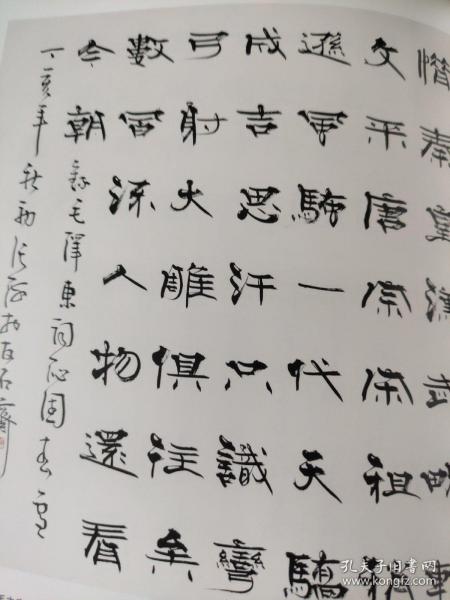 惜秦皇漢武略輸
文采唐宗宋祖稍
遜風騷一代天驕
成吉思汗只識彎
弓射大雕俱往矣
數風流人物還看
今朝
錄毛澤東詞沁園春雪
丁亥年秋初
孔夫子旧书网